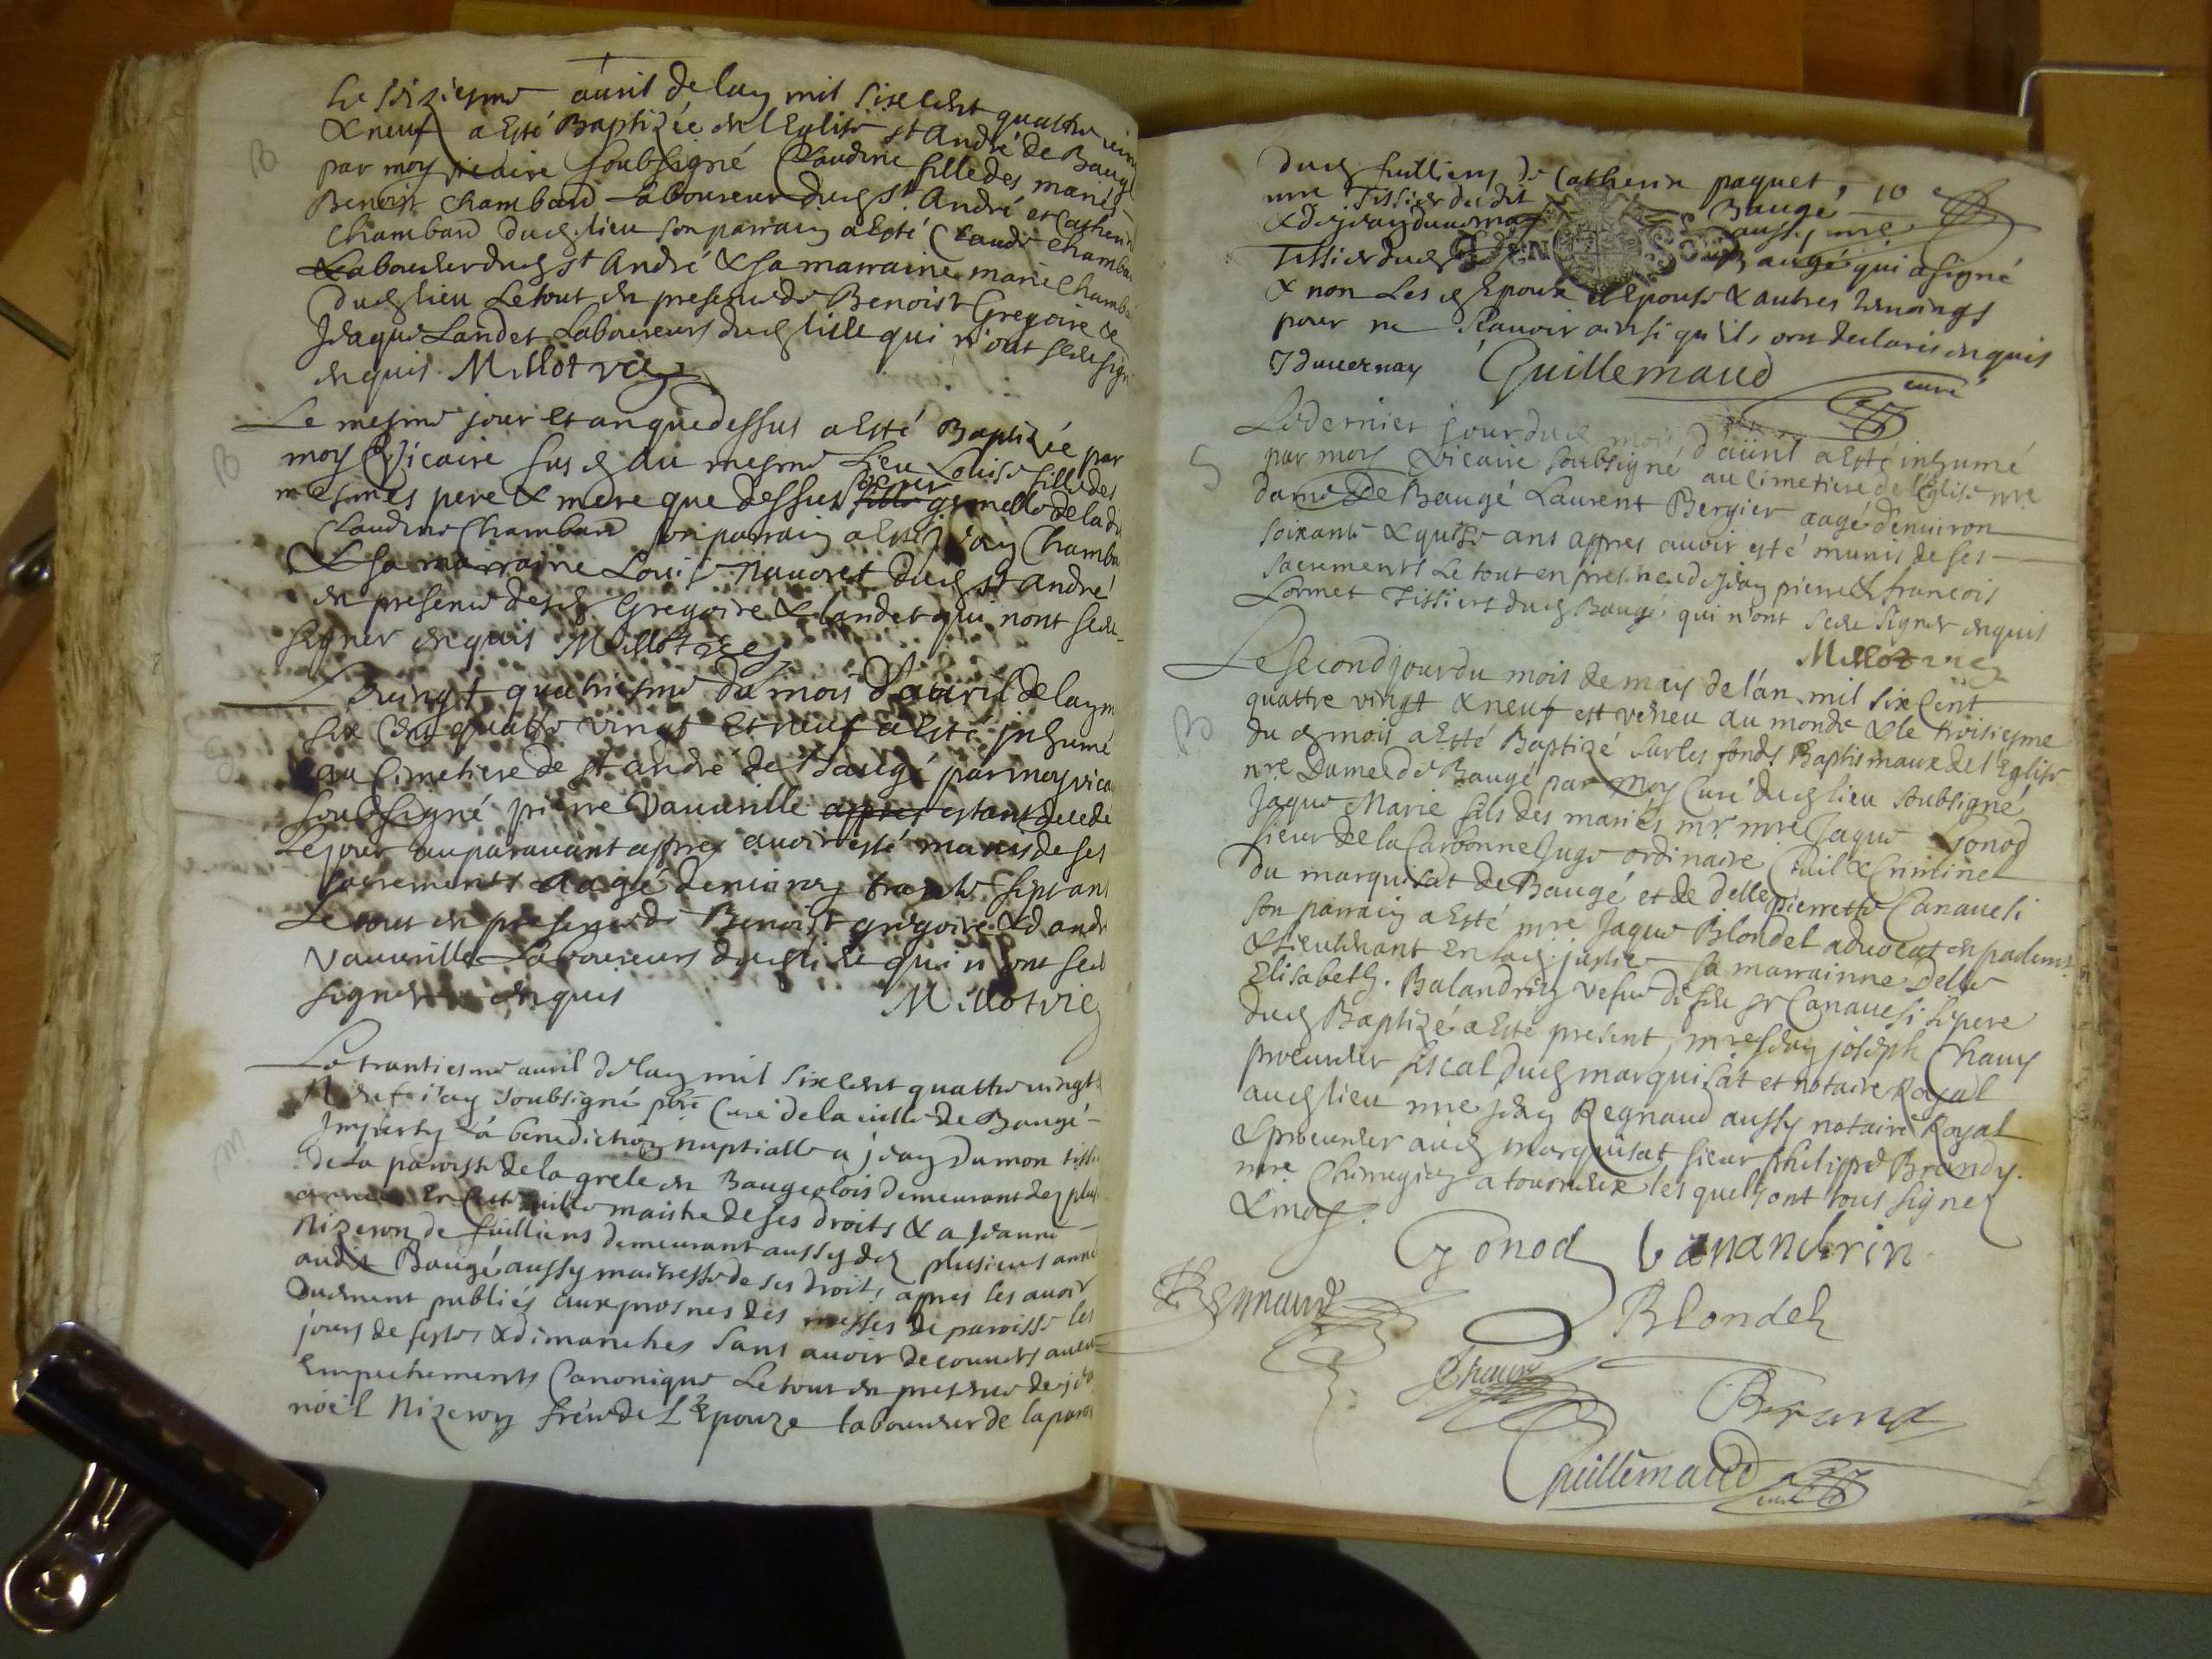 B
Le seiziesme auril de lan mil sixcent quattre vingt
& neuf a esté Baptizée en l'Eglise st André de Baugé
par moy vicaire soubsigné Claudine fille des mariés
Benoist Chambard Laboureur dud st André et Catherine
Chambard dud lieu son parrain a esté Claude Chambard
Laboureur dud st André & sa marraine marie Chambard
dud lieu Le tout en presence de Benoist Gregoire &
Jeaque Landet Laboureurs dud lieu qui n'ont sceu signer
enquis Millot vic
B
Le mesme jour et an que dessus a esté Baptizée par
moy vicaire susd au mesme Lieu Louise fille des
mesmes pere & mere que dessus soeur gemelle de lad
Claudine Chambard son parrain a esté Jean Chambard
& sa marraine Louise nauoret dud st andré
en presence desd Gregoire & landet qui nont sceu
signer enquis Millot vic
Le vingt quatriesme du mois d'auril de lan m
six cent quattre vingt et neuf a esté inhumé
au Cimetiere de st andré de Baugé par moy vica
soubsigné pierre Vauuville appres estant decedé
Le jour auparauant appres auoir esté munis de ses
sacrements aagé denuiron trante sept ans
Le tout en presence de Benoist gregoire & d andré
Vauuville Laboureurs dud lieu qui n ont sceu
signer enquis Millot vic
M
Le trantiesme auril de lan mil sixcent quattre vingt
Neuf i'ay soubsigné pbre Curé de la ville de Baugé
Imparty la benediction nuptialle a jean Dumon tissier
de la paroisse de la grele en Baugeolois demeurant dez plus
années en cette ville maistre de ses droits & a Jeanne
Nizeron de fuilliens demeurant aussy dez plusieurs année
audit Baugé aussy maitresse de ses droits, appres les auoir
duement publiés aux prosnes des messes de paroisse les
jours de festes & dimanches sans auoir decouuert aucu
Empechements Canonique Le tout en presence de
noël Nizeron frere de L'Epouze laboureur de la paroi
dud fuilliens de Catherin paquet, 10
mre Tissier du dit Baugé
& de jean aussy mre
Tissier dud Baugé qui a signé
& non Les d Epoux et Epouse & autres temoings
pour ne Scauoir ainsi qu'ils ont declarés enquis
J duuernay Guillemaud curé
S
Le dernier jour dud mois d'auril a esté inhumé
par moy vicaire soubsigné au cimetiere de l'Eglise nre
dame de Baugé Laurent Bergier aagé d'enuiron
soixante & quinse ans appres auoir esté munis de ses
sacrements Le tout en presence de jean pierre & francois
Lormet Tissiers dud Baugé qui n'ont sceu signer enquis
Millot vic
B
Le second jour du mois de may de l'an mil six cent
quattre vingt & neuf est veneu au monde & le troisiesme
du d mois a esté Baptizé sur les fonds Baptismaux de l'Eglise
nre Dame de Baugé par moy Curé dud lieu subsigné
Jaque Marie fils des mariés mr mre Jaque Gonod
sieur de la Carbonne Juge ordinaire Ciuil & Criminel
du marquisat de Baugé et de delle pierrette Canauesi
son parrain a Esté mre Jaque Blondel aduocat en parlemt
& lieutenant en lad justice sa marrainne delle
Elisabeth Balandrin vefue de feu sr Canauesi le pere
dud Baptizé a esté present, mre jean joseph Chaux
procureur fiscal dud marquisat et notaire Royal
aud lieu mre jean Regnaud aussy notaire Royal
& procureur aud marquisat sieur philippe Brandy
mre Chirurgien a les quels ont tous signez
& moy.
Gonod Banandrin
Regnaud Blondel
Chaux
Guillemaud curé